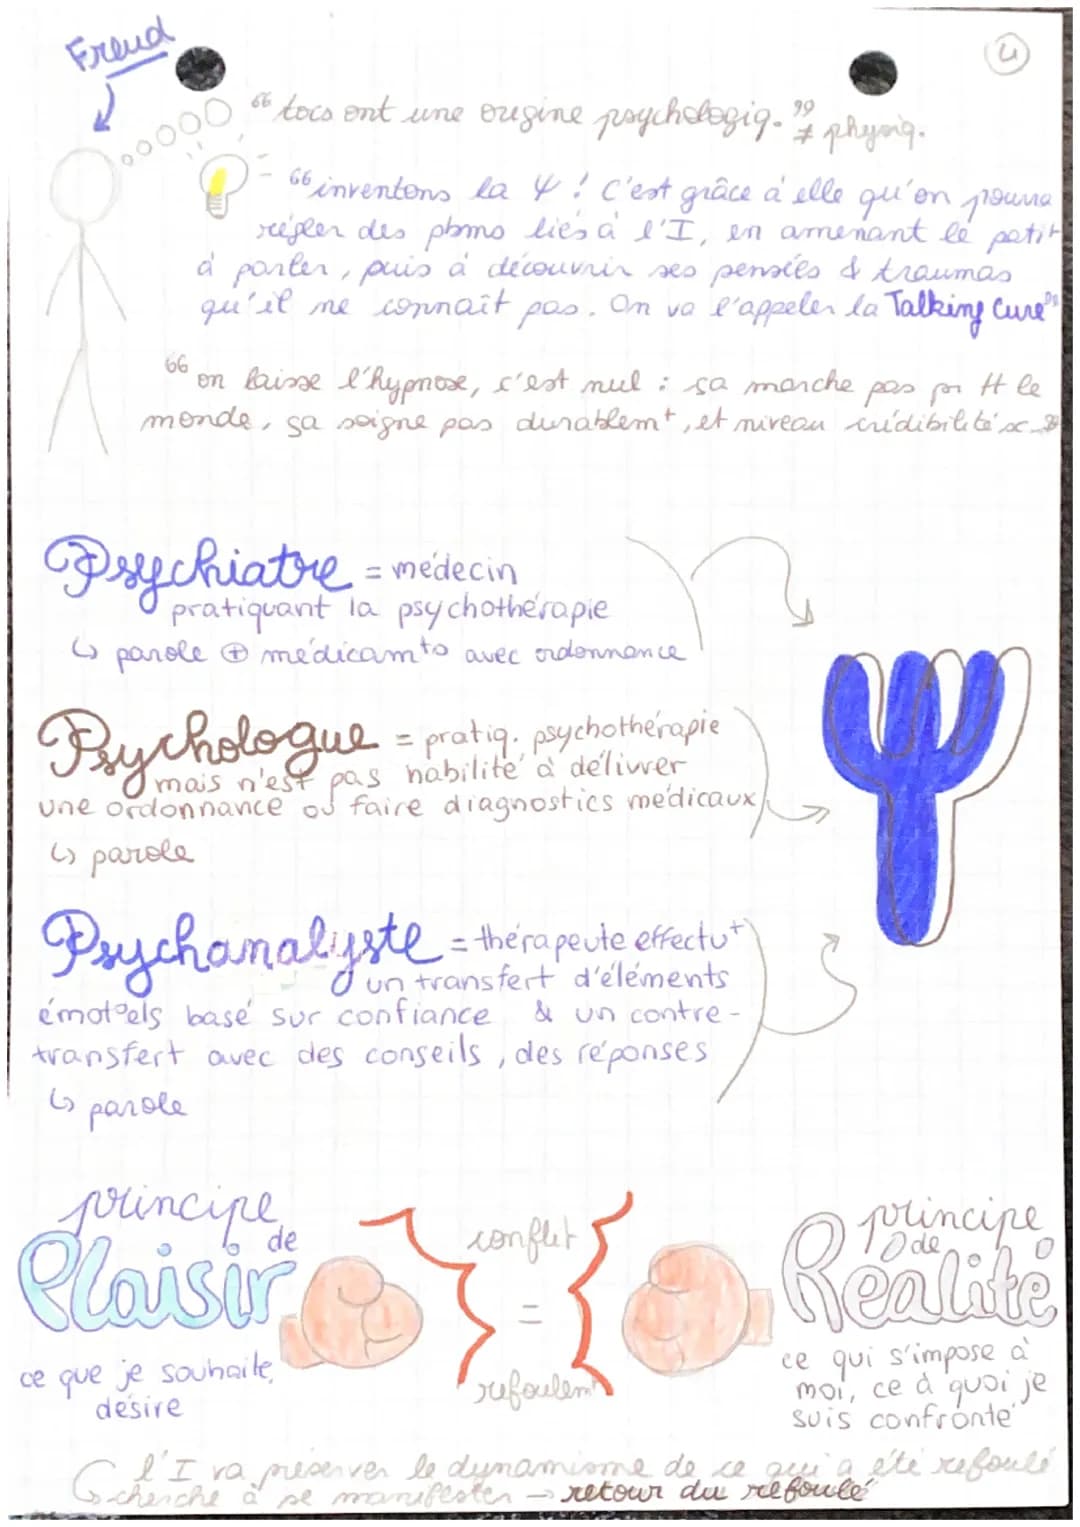 Freud
4
“tocs ont une origine psychologiq.” ≠ physiq.
“inventons la Ψ ! C'est grâce à elle qu'on pourra
régler des pbms liés à l'I, en amenant le patit
à parler, puis à découvrir ses pensées & traumas
qu'il ne connaît pas. On va l'appeler la Talking Cure”
“on laisse l'hypnose, c'est nul : ça marche pas pr tt le
monde, ça soigne pas durablemt, et niveau crédibilité
Psychiatre = médecin
pratiquant la psychothérapie
↳ parole ⊕ médicamts avec ordonnance
Psychologue = pratiq. psychothérapie
mais n'est pas habilité à délivrer
une ordonnance ou faire diagnostics médicaux
↳ parole
Psychanalyste = thérapeute effectut
un transfert d'éléments
émotoels basé sur confiance & un contre-
transfert avec des conseils, des réponses
↳ parole
principe de Plaisir
ce que je souhaite,
désire
conflit
=
refoulemt
principe de Réalité
ce qui s'impose à
moi, ce à quoi je
suis confronté
l'I va préserver le dynamisme de ce qui a été refoulé
↳ cherche à se manifester → retour du refoulé